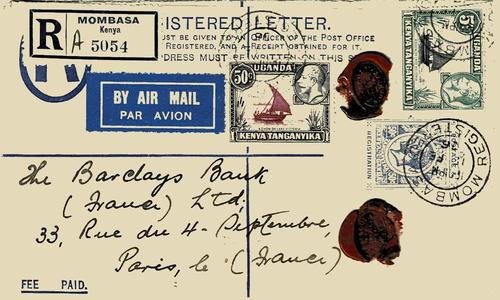 R
MOMBASA
Kenya
A 5054
ISTERED LETTER.
UST BE GIVEN TO AN OFFICER OF THE POST OFFICE
REGISTERED, AND A RECEIPT OBTAINED FOR IT.
DRESS MUST BE WRITTEN ON THIS S
BY AIR MAIL
PAR AVION
50c
UGANDA
KENYA TANGANYIKA
5c
KENYA TANGANYIKA
REGISTRATION
REGISTERED
MOMBASA
The Barclays Bank
(France) Ltd.
33, Rue du 4-Septembre,
Paris, le (France)
FEE PAID.